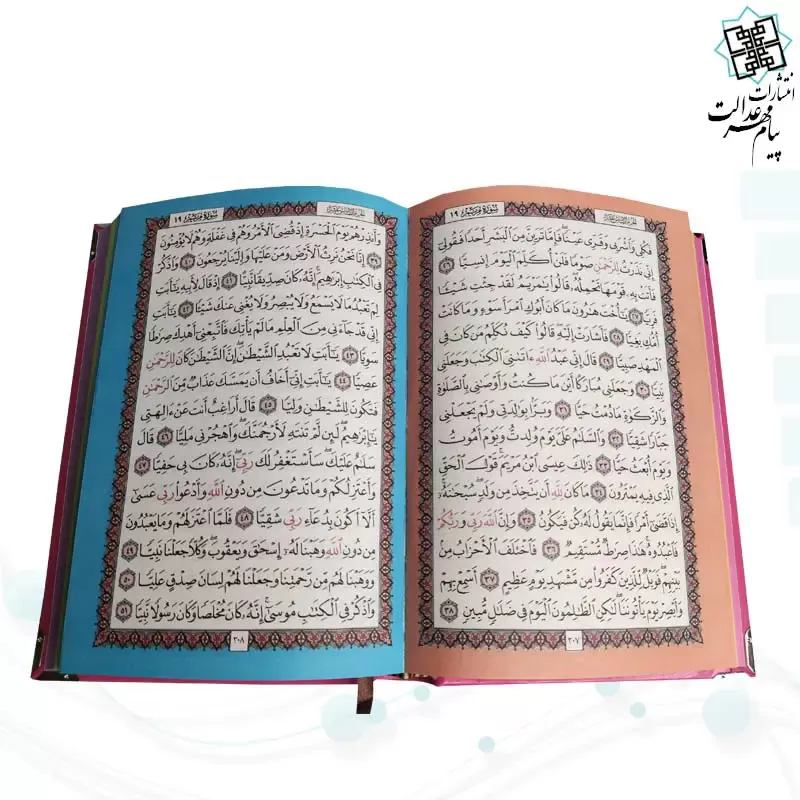 انتشارات
پیام مهر عدالت
الجزء السادس عشر
سورة مريم ١٩
فَكُلِي وَاشْرَبِي وَقَرِّي عَيْنًا ۖ فَإِمَّا تَرَيِنَّ مِنَ الْبَشَرِ أَحَدًا فَقُولِي
إِنِّي نَذَرْتُ لِلرَّحْمَٰنِ صَوْمًا فَلَنْ أُكَلِّمَ الْيَوْمَ إِنْسِيًّا ٢٦
فَأَتَتْ بِهِ قَوْمَهَا تَحْمِلُهُ ۖ قَالُوا يَا مَرْيَمُ لَقَدْ جِئْتِ شَيْئًا
فَرِيًّا ٢٧ يَا أُخْتَ هَارُونَ مَا كَانَ أَبُوكِ امْرَأَ سَوْءٍ وَمَا كَانَتْ
أُمُّكِ بَغِيًّا ٢٨ فَأَشَارَتْ إِلَيْهِ ۖ قَالُوا كَيْفَ نُكَلِّمُ مَنْ كَانَ فِي
الْمَهْدِ صَبِيًّا ٢٩ قَالَ إِنِّي عَبْدُ اللَّهِ آتَانِيَ الْكِتَابَ وَجَعَلَنِي
نَبِيًّا ٣٠ وَجَعَلَنِي مُبَارَكًا أَيْنَ مَا كُنْتُ وَأَوْصَانِي بِالصَّلَاةِ
وَالزَّكَاةِ مَا دُمْتُ حَيًّا ٣١ وَبَرًّا بِوَالِدَتِي وَلَمْ يَجْعَلْنِي
جَبَّارًا شَقِيًّا ٣٢ وَالسَّلَامُ عَلَيَّ يَوْمَ وُلِدْتُ وَيَوْمَ أَمُوتُ
وَيَوْمَ أُبْعَثُ حَيًّا ٣٣ ذَٰلِكَ عِيسَى ابْنُ مَرْيَمَ ۚ قَوْلَ الْحَقِّ
الَّذِي فِيهِ يَمْتَرُونَ ٣٤ مَا كَانَ لِلَّهِ أَنْ يَتَّخِذَ مِنْ وَلَدٍ ۖ سُبْحَانَهُ ۚ
إِذَا قَضَىٰ أَمْرًا فَإِنَّمَا يَقُولُ لَهُ كُنْ فَيَكُونُ ٣٥ وَإِنَّ اللَّهَ رَبِّي وَرَبُّكُمْ
فَاعْبُدُوهُ ۚ هَٰذَا صِرَاطٌ مُسْتَقِيمٌ ٣٦ فَاخْتَلَفَ الْأَحْزَابُ مِنْ
بَيْنِهِمْ ۖ فَوَيْلٌ لِلَّذِينَ كَفَرُوا مِنْ مَشْهَدِ يَوْمٍ عَظِيمٍ ٣٧ أَسْمِعْ بِهِمْ
وَأَبْصِرْ يَوْمَ يَأْتُونَنَا ۖ لَٰكِنِ الظَّالِمُونَ الْيَوْمَ فِي ضَلَالٍ مُبِينٍ ٣٨
٣٠٧
الجزء السادس عشر
سورة مريم ١٩
وَأَنْذِرْهُمْ يَوْمَ الْحَسْرَةِ إِذْ قُضِيَ الْأَمْرُ وَهُمْ فِي غَفْلَةٍ وَهُمْ لَا يُؤْمِنُونَ
٣٩ إِنَّا نَحْنُ نَرِثُ الْأَرْضَ وَمَنْ عَلَيْهَا وَإِلَيْنَا يُرْجَعُونَ ٤٠ وَاذْكُرْ
فِي الْكِتَابِ إِبْرَاهِيمَ ۚ إِنَّهُ كَانَ صِدِّيقًا نَبِيًّا ٤١ إِذْ قَالَ لِأَبِيهِ يَا أَبَتِ
لِمَ تَعْبُدُ مَا لَا يَسْمَعُ وَلَا يُبْصِرُ وَلَا يُغْنِي عَنْكَ شَيْئًا ٤٢ يَا أَبَتِ
إِنِّي قَدْ جَاءَنِي مِنَ الْعِلْمِ مَا لَمْ يَأْتِكَ فَاتَّبِعْنِي أَهْدِكَ صِرَاطًا
سَوِيًّا ٤٣ يَا أَبَتِ لَا تَعْبُدِ الشَّيْطَانَ ۖ إِنَّ الشَّيْطَانَ كَانَ لِلرَّحْمَٰنِ
عَصِيًّا ٤٤ يَا أَبَتِ إِنِّي أَخَافُ أَنْ يَمَسَّكَ عَذَابٌ مِنَ الرَّحْمَٰنِ
فَتَكُونَ لِلشَّيْطَانِ وَلِيًّا ٤٥ قَالَ أَرَاغِبٌ أَنْتَ عَنْ آلِهَتِي
يَا إِبْرَاهِيمُ ۖ لَئِنْ لَمْ تَنْتَهِ لَأَرْجُمَنَّكَ ۖ وَاهْجُرْنِي مَلِيًّا ٤٦ قَالَ
سَلَامٌ عَلَيْكَ ۖ سَأَسْتَغْفِرُ لَكَ رَبِّي ۖ إِنَّهُ كَانَ بِي حَفِيًّا ٤٧
وَأَعْتَزِلُكُمْ وَمَا تَدْعُونَ مِنْ دُونِ اللَّهِ وَأَدْعُو رَبِّي عَسَىٰ
أَلَّا أَكُونَ بِدُعَاءِ رَبِّي شَقِيًّا ٤٨ فَلَمَّا اعْتَزَلَهُمْ وَمَا يَعْبُدُونَ
مِنْ دُونِ اللَّهِ وَهَبْنَا لَهُ إِسْحَاقَ وَيَعْقُوبَ ۖ وَكُلًّا جَعَلْنَا نَبِيًّا ٤٩
وَوَهَبْنَا لَهُمْ مِنْ رَحْمَتِنَا وَجَعَلْنَا لَهُمْ لِسَانَ صِدْقٍ عَلِيًّا ٥٠
وَاذْكُرْ فِي الْكِتَابِ مُوسَىٰ ۚ إِنَّهُ كَانَ مُخْلَصًا وَكَانَ رَسُولًا نَبِيًّا ٥١
٣٠٨